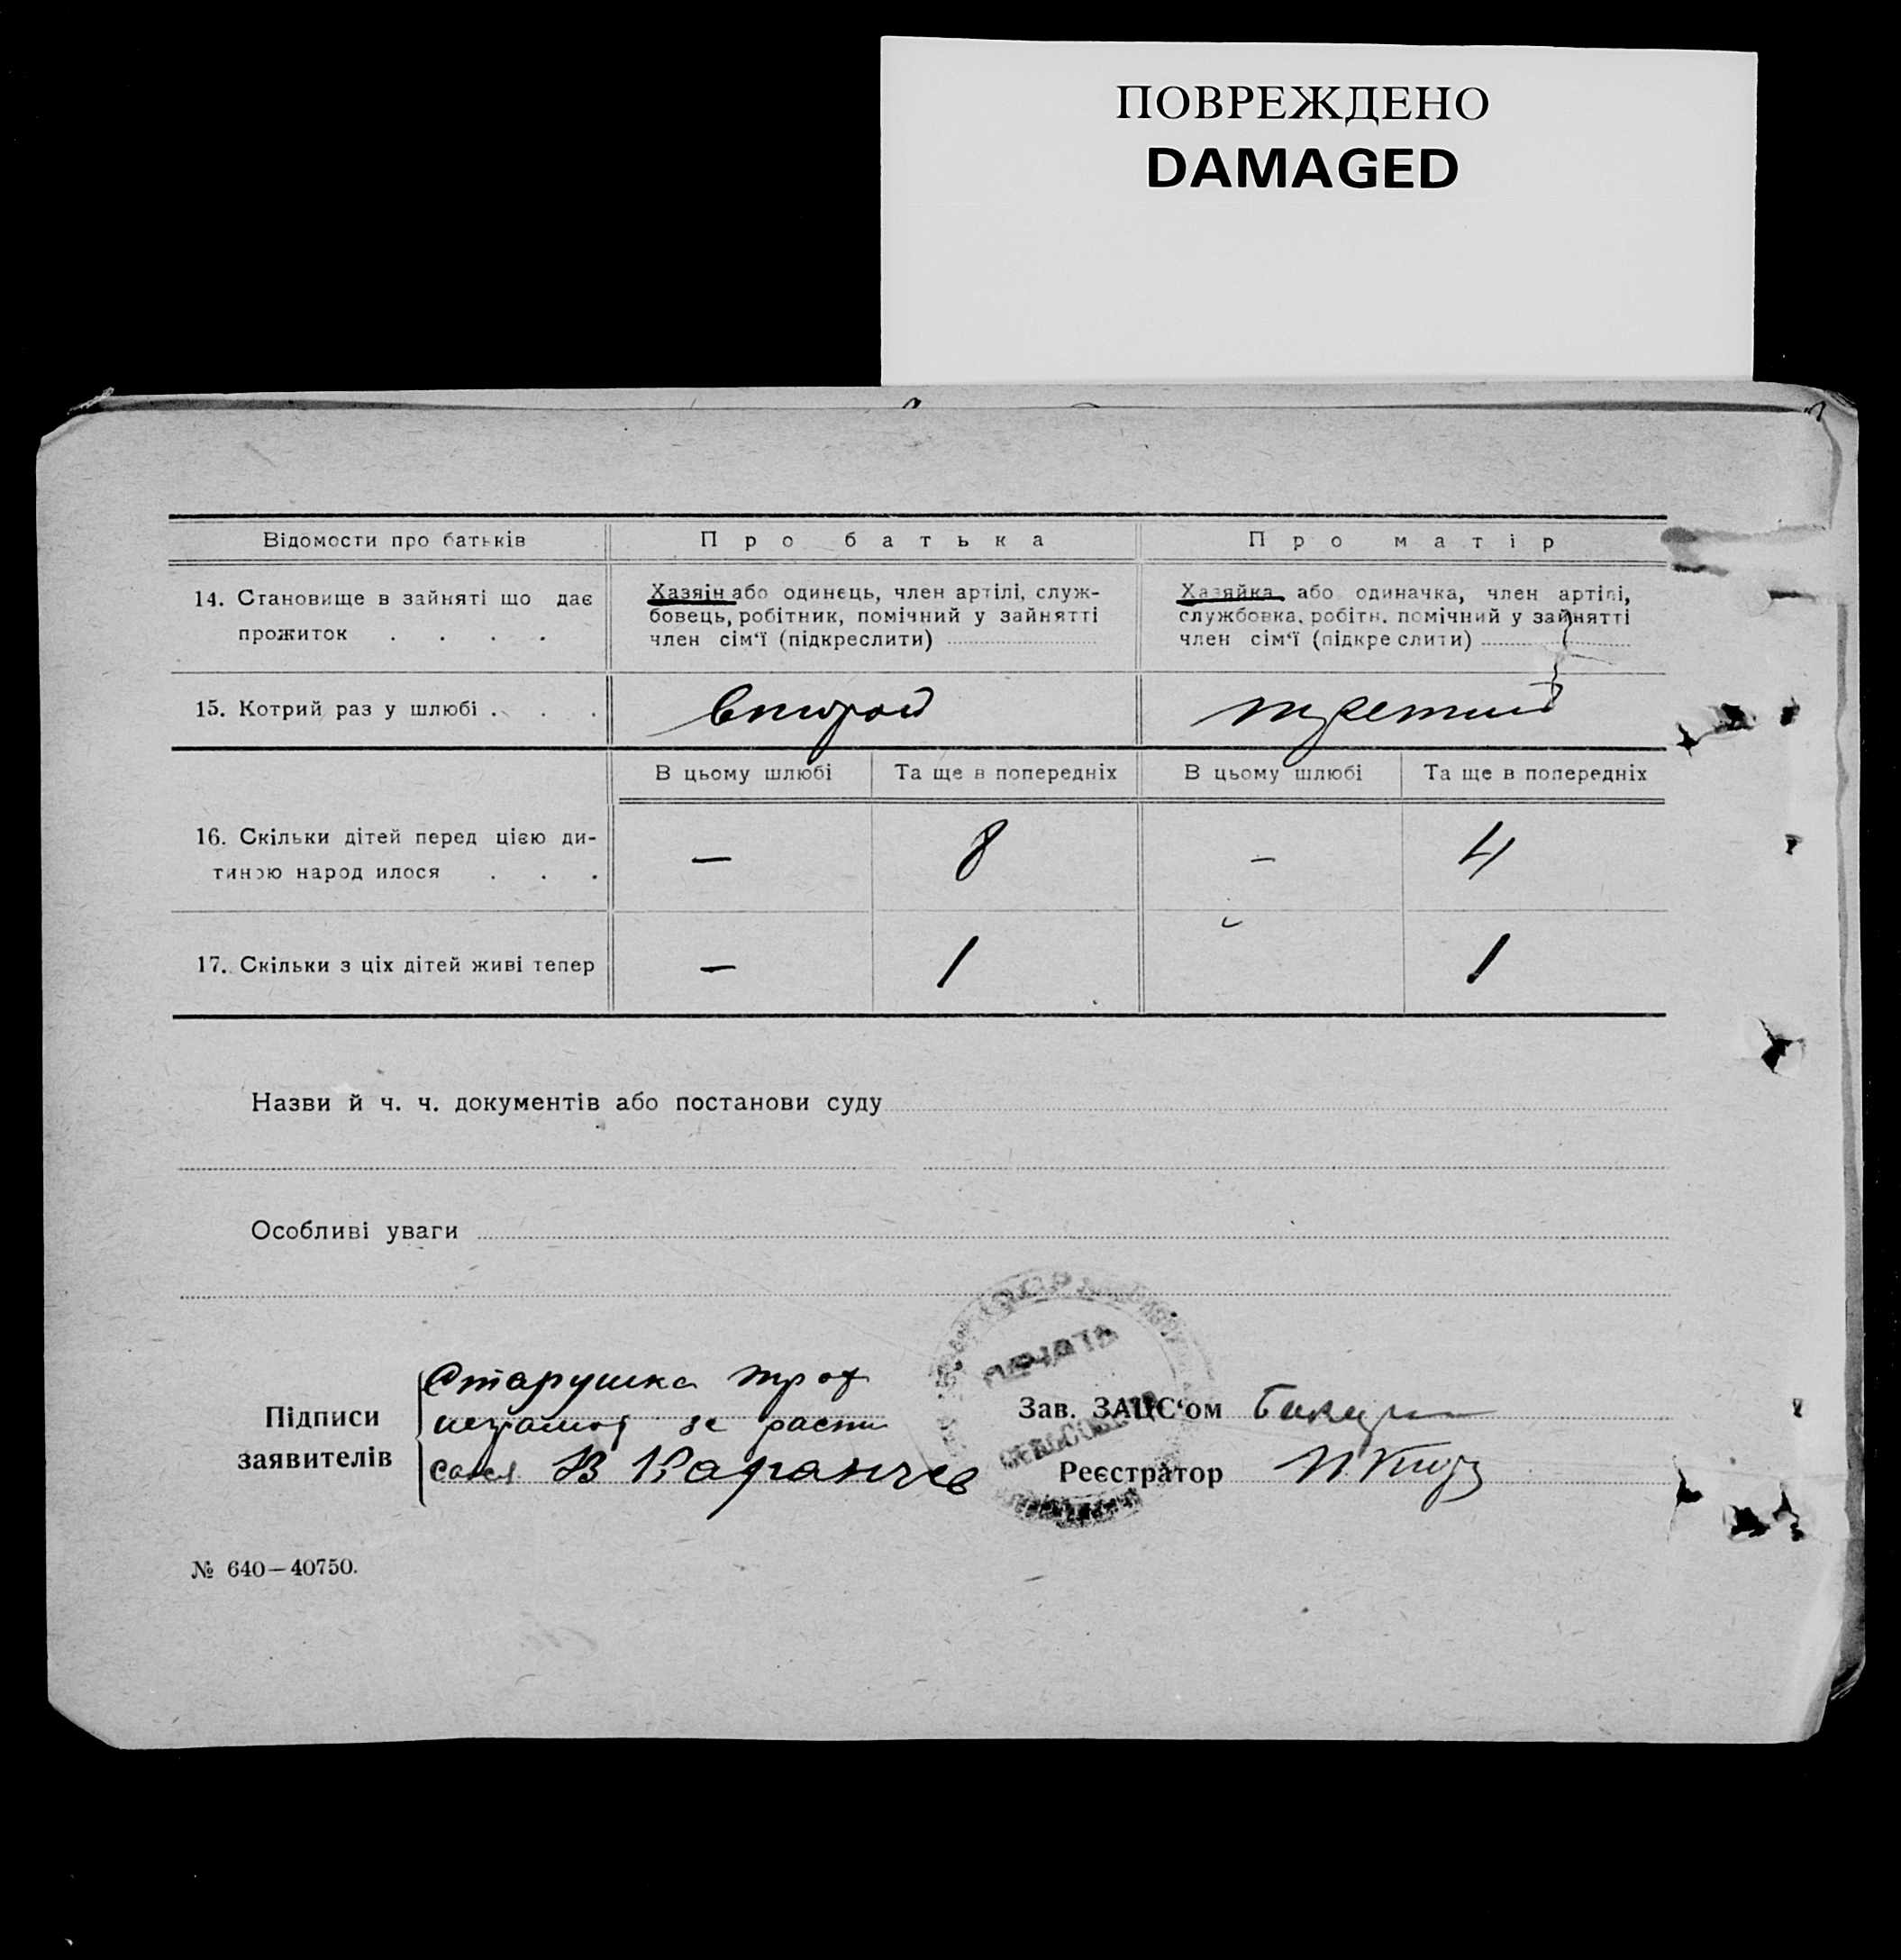 ПОВРЕЖДЕНО
DAMAGED
Відомости про батьків
Про батька
Про матір
14. Становище в зайняті що дає
прожиток . . . .
Хазяїн або одинець, член артілі, служ-
бовець, робітник, помічний у зайнятті
член сім'ї (підкреслити)
Хазяйка або одиначка, член артілі,
службовка, робітн. помічний у зайнятті
член сім'ї (підкреслити)
15. Котрий раз у шлюбі . . .
второй
третий
В цьому шлюбі
Та ще в попередніх
В цьому шлюбі
Та ще в попередніх
16. Скільки дітей перед цією ди-
тиною народилося . . .
— 8 — 4
17. Скільки з ціх дітей живі тепер
— 1 1
Назви й ч. ч. документів або постанови суду
Особливі уваги
Підписи
заявителів
Старушка
за распи
сался В
Зав. ЗАЦС'ом
Реєстратор
ПЕЧАТЬ
№ 640—40750.